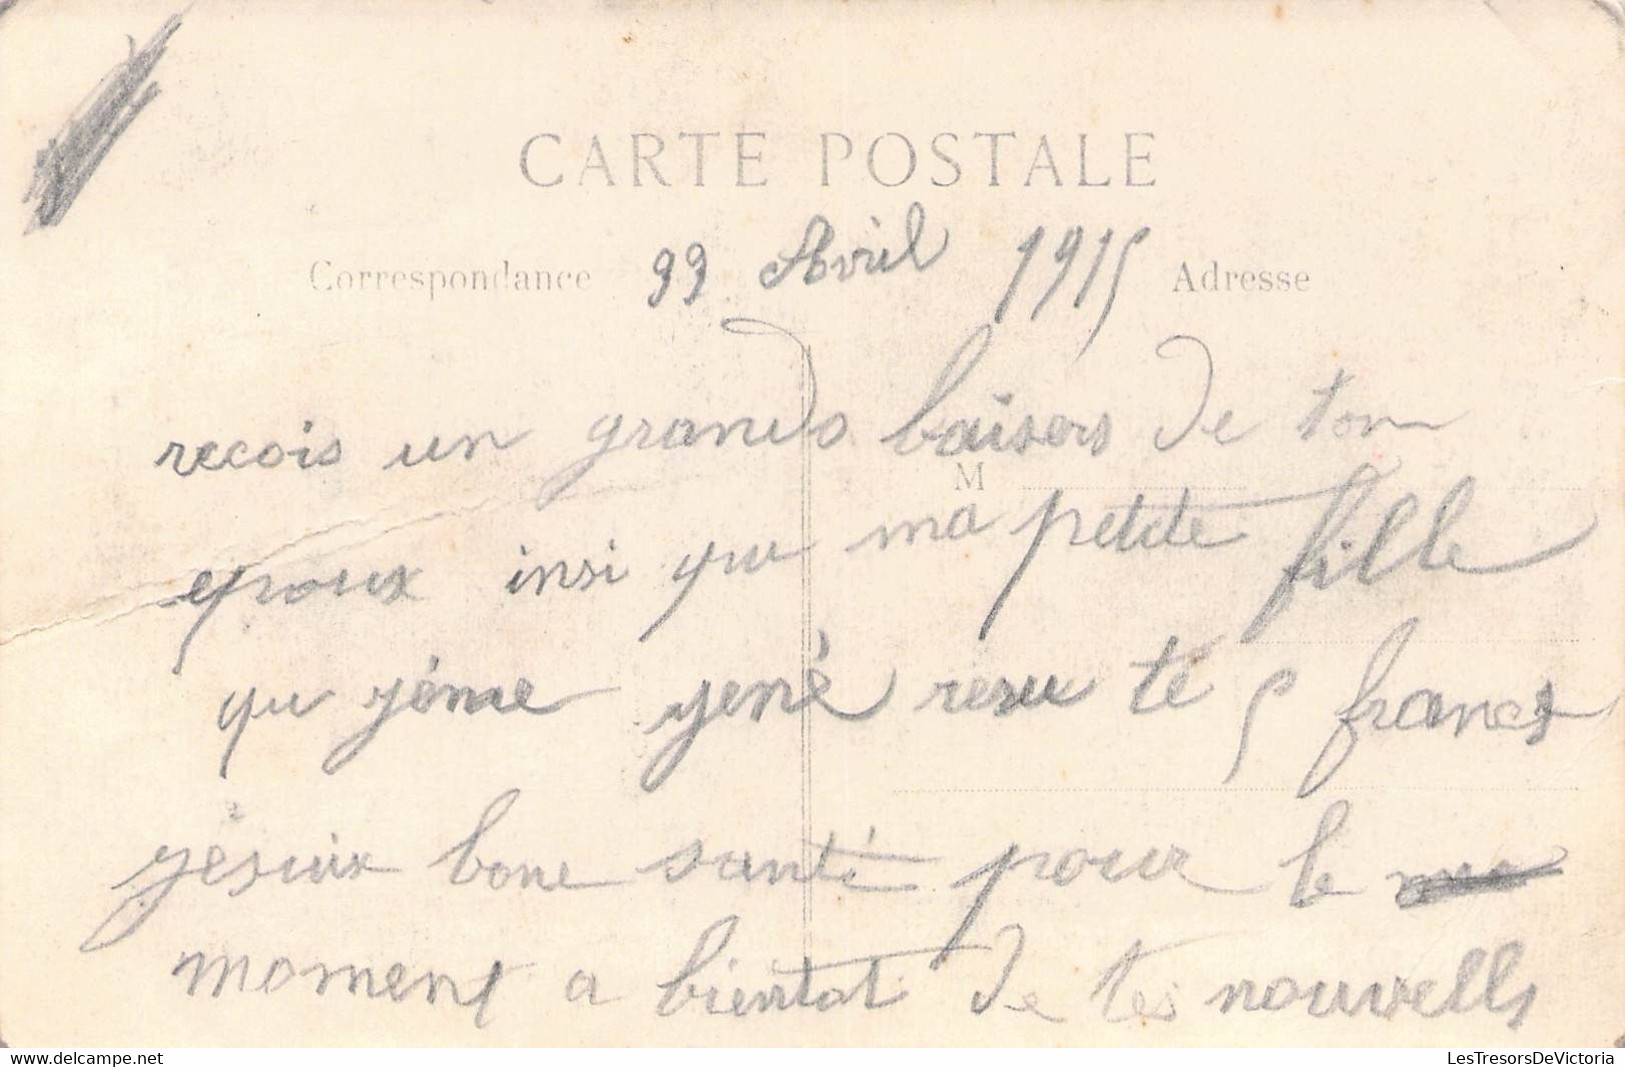 CARTE POSTALE
Correspondance 99 Avril 1915 Adresse
recois un grands baisers de ton
M
epoux insi qu ma petite fille
qu j'éme jené resu té 5 francs
jésuix bone santé pour le
moment a bientot de tes nouvells
www.delcampe.net LesTresorsDeVictoria